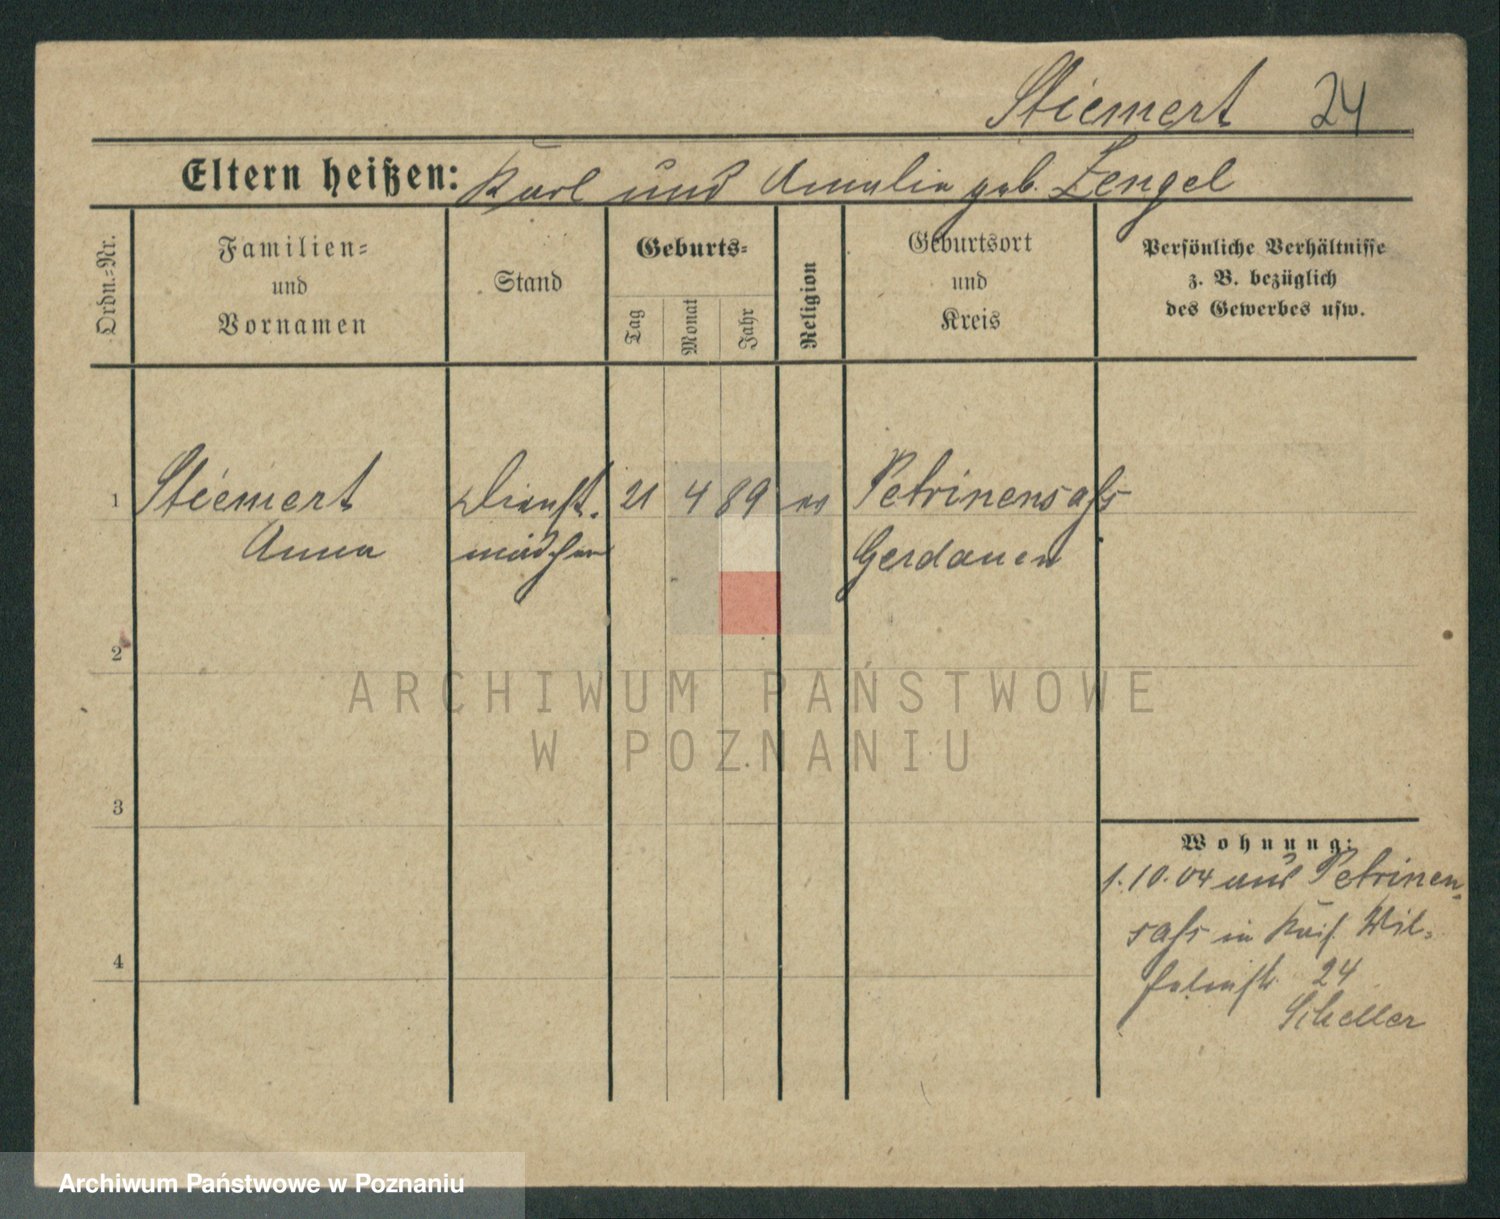 Stiemert 24
Eltern heißen: Karl und Amalie geb. Zengel
Ordn.-Nr.
Familien-
und
Vornamen
Stand
Geburts-
Tag
Monat
Jahr
Religion
Geburtsort
und
Kreis
Persönliche Verhältnisse
z. B. bezüglich
des Gewerbes usw.
1 Stiemert Dienst- 21 4 89 Petrinensaß
Anna mädchen Gerdauen
2
3
4
Wohnung:
1.10.04 aus Petrinen-
saß in Kais. Wil-
helmstr. 24
Scheller
ARCHIWUM PAŃSTWOWE
W POZNANIU
Archiwum Państwowe w Poznaniu